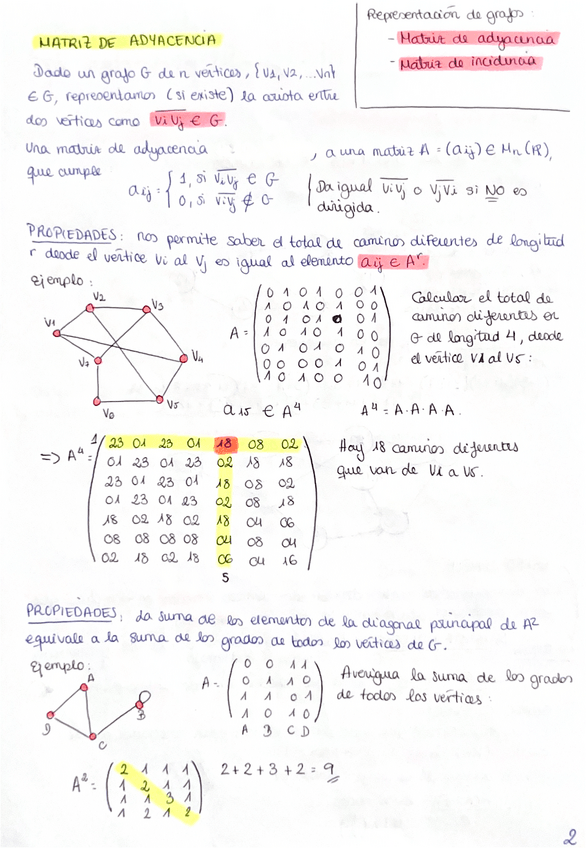 Representación de grafos:
- Matriz de adyacencia
- Matriz de incidencia
MATRIZ DE ADYACENCIA
Dado un grafo G de n vértices, {V1, V2, ...Vn}
∈ G, representamos (si existe) la arista entre
dos vértices como ViVj ∈ G.
Una matriz de adyacencia , a una matriz A = (aij) ∈ Mn (R),
que cumple
aij = { 1, si ViVj ∈ G
0, si ViVj ∉ G
Da igual ViVj o VjVi si NO es
dirigida.
PROPIEDADES: nos permite saber el total de caminos diferentes de longitud
r desde el vértice Vi al Vj es igual al elemento aij ∈ A^r.
Ejemplo:
V1
V2
V3
V4
V5
V6
V7
A =
0 1 0 1 0 0 1
1 0 1 0 1 0 0
0 1 0 1 0 0 1
1 0 1 0 1 0 0
0 1 0 1 0 1 0
0 0 0 0 1 0 1
1 0 1 0 0 1 0
Calcular el total de
caminos diferentes en
G de longitud 4, desde
el vértice V1 al V5:
a15 ∈ A^4
A^4 = A·A·A·A.
=> A^4 =
1
23 01 23 01 18 08 02
01 23 01 23 02 18 18
23 01 23 01 18 08 02
01 23 01 23 02 08 18
18 02 18 02 18 04 06
08 08 08 08 04 08 04
02 18 02 18 06 04 16
5
Hay 18 caminos diferentes
que van de V1 a V5.
PROPIEDADES: La suma de los elementos de la diagonal principal de A2
equivale a la suma de los grados de todos los vértices de G.
Ejemplo:
A
B
C
D
A =
0 0 1 1
0 1 1 0
1 1 0 1
1 0 1 0
A B C D
Averigua la suma de los grados
de todos los vértices:
A² =
2 1 1 1
1 2 1 1
1 1 3 1
1 2 1 2
2+2+3+2 = 9
2